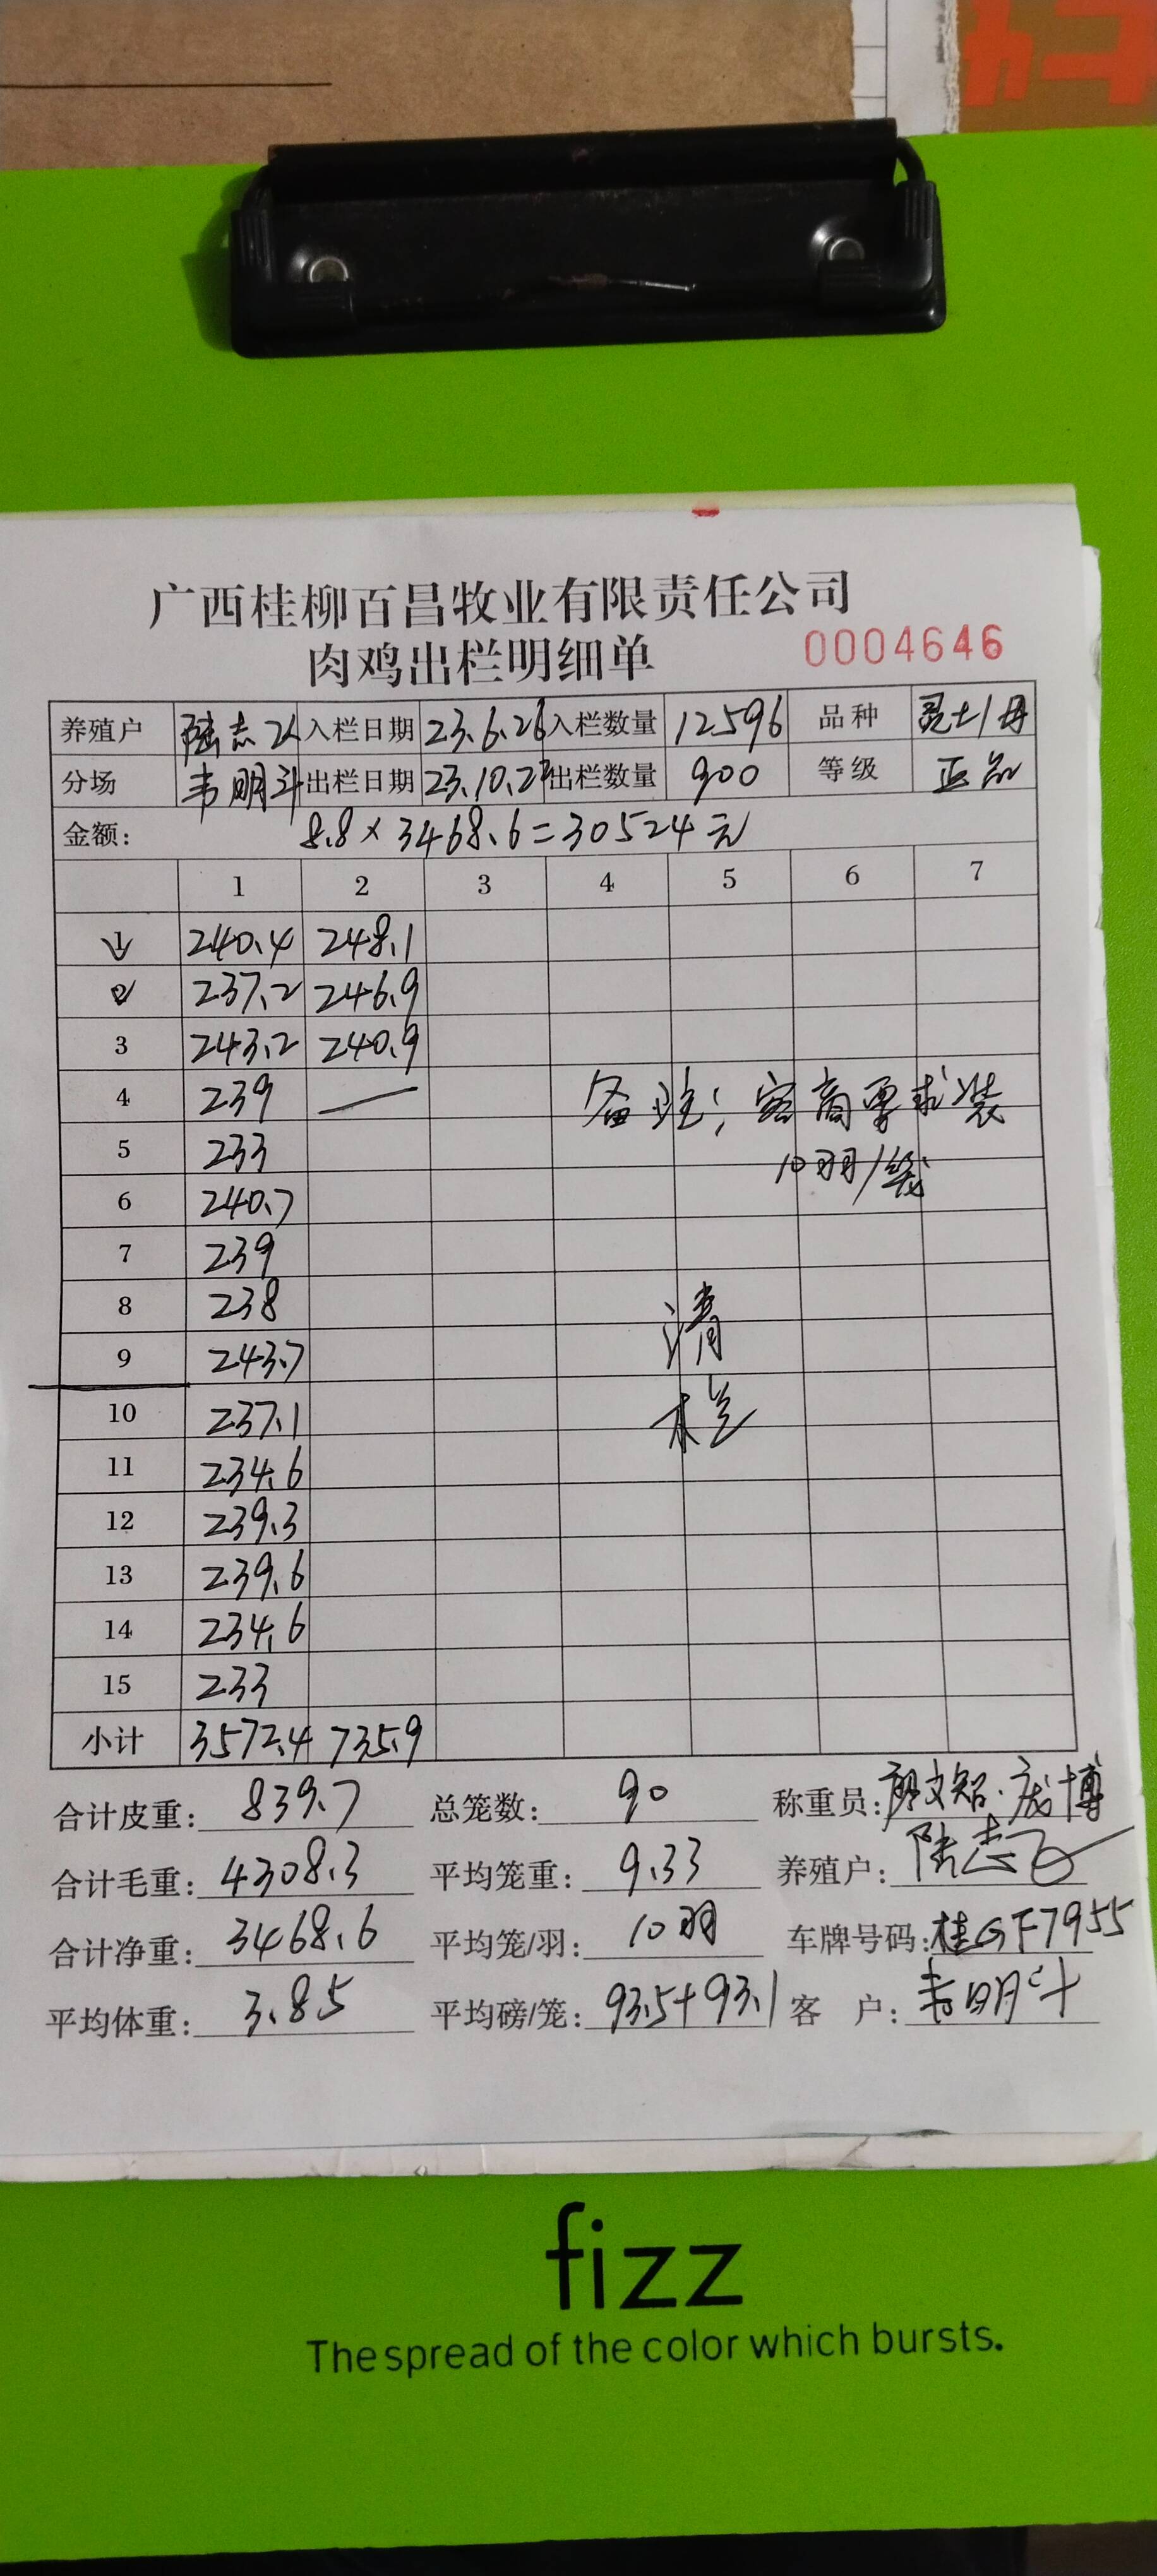 广西桂柳百昌牧业有限责任公司
肉鸡出栏明细单 0004646
养殖户 陆志飞 入栏日期 23.6.26 入栏数量 12596 品种
分场 韦明斗 出栏日期 23.10.27 出栏数量 900 等级 正品
金额: 8.8×3468.6=30524元
1 2 3 4 5 6 7
1 240.4 248.1
2 237.2 246.9
3 243.2 240.9
4 239 — 备注; 客商要求装
5 233 10羽/袋
6 240.7
7 239
8 238 清
9 243.7
10 237.1 栏
11 234.6
12 239.3
13 239.6
14 234.6
15 233
小计 3572.4 735.9
合计皮重: 839.7 总笼数: 90 称重员: 庞博
合计毛重: 4308.3 平均笼重: 9.33 养殖户: 陆志飞
合计净重: 3468.6 平均笼/羽: 10羽 车牌号码: 桂GF7955
平均体重: 3.85 平均磅/笼: 93.5+93.1 客户: 韦明斗
fizz
The spread of the color which bursts.